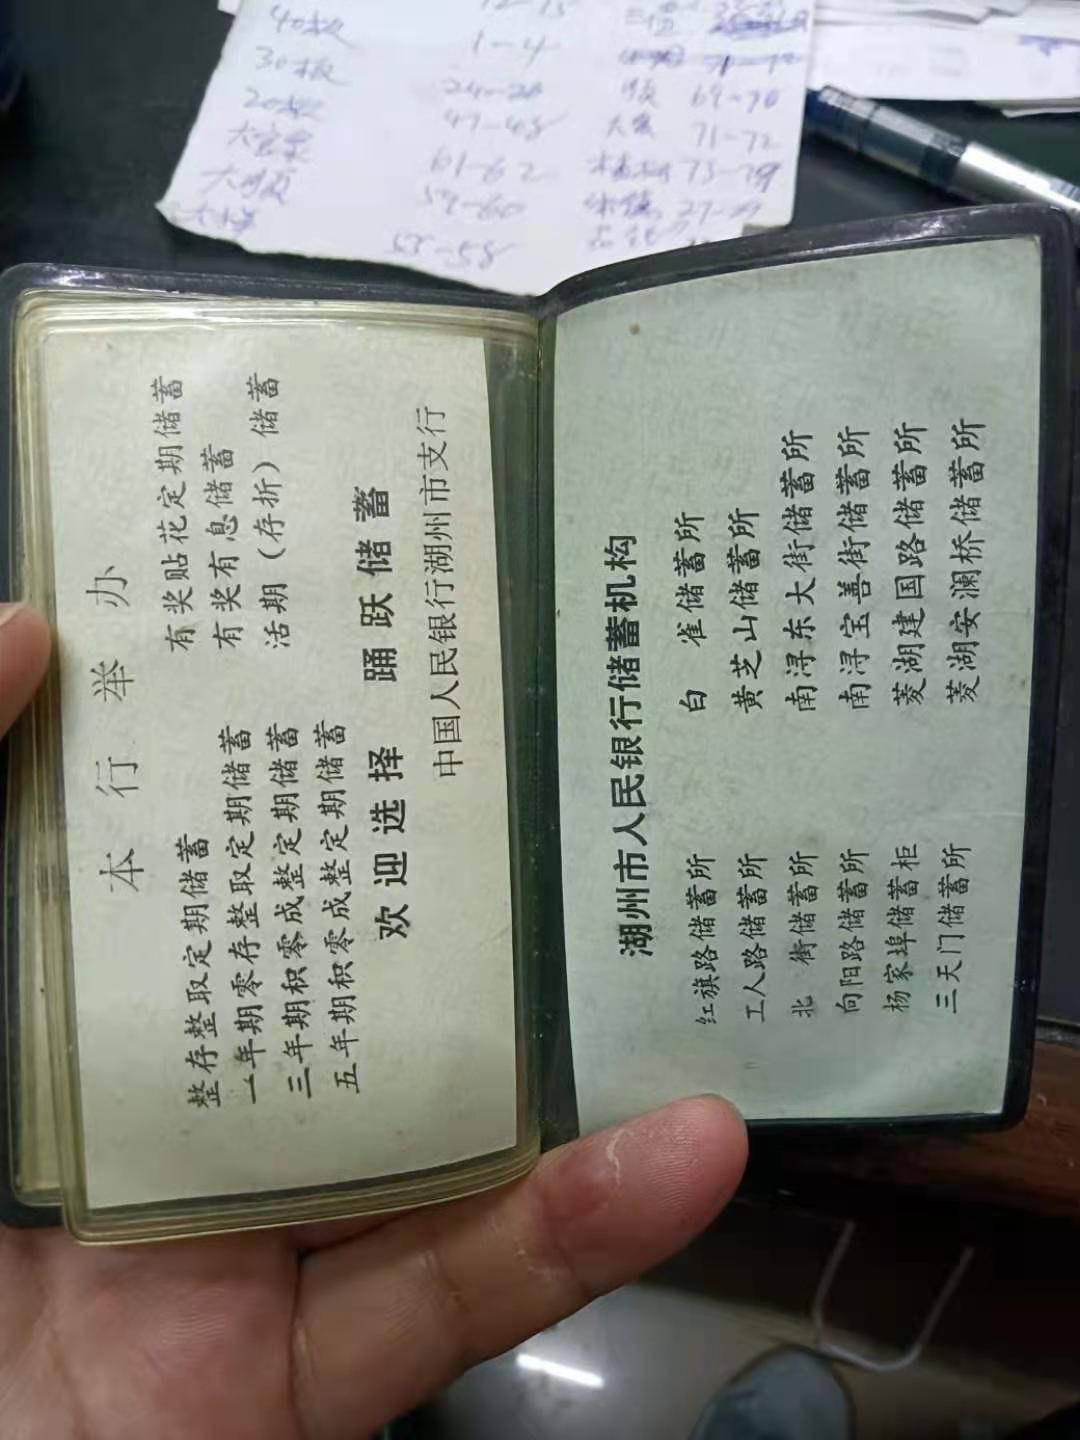 40板
30板
1-4
24-26
47-48
61-62
59-60
55-58
69-70
71-72
本行举办
整存整取定期储蓄
有奖贴花定期储蓄
一年期零存整取定期储蓄
有奖有息储蓄
三年期积零成整定期储蓄
活期（存折）储蓄
五年期积零成整定期储蓄
欢迎选择 踊跃储蓄
中国人民银行湖州市支行
湖州市人民银行储蓄机构
红旗路储蓄所
白雀储蓄所
工人路储蓄所
黄芝山储蓄所
北街储蓄所
南浔东大街储蓄所
向阳路储蓄所
南浔宝善街储蓄所
杨家埠储蓄柜
菱湖建国路储蓄所
三天门储蓄所
菱湖安澜桥储蓄所